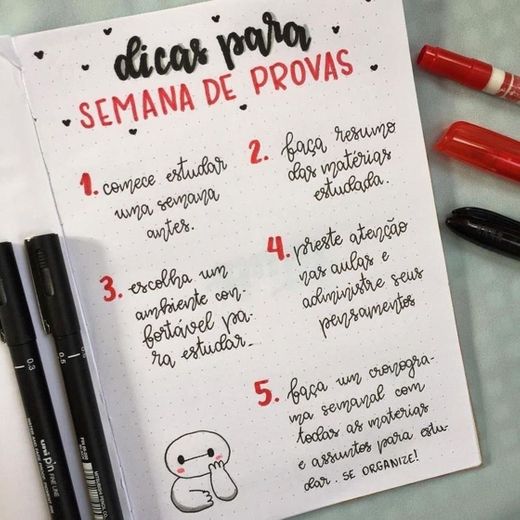 dicas para
SEMANA DE PROVAS
1. comece estudar
uma semana
antes.
2. faça resumo
das matérias
estudada.
3. escolha um
ambiente con-
fortável pa-
ra estudar.
4. preste atenção
nas aulas e
administre seus
pensamentos
5. faça um cronogra-
ma semanal com
todas as materias
e assuntos para estu-
dar. SE ORGANIZE!
0.3
uni pin
FINE LINE
0.5